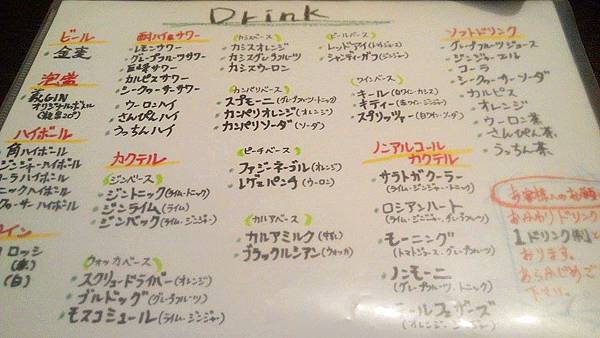 Drink
ビール
金麦
泡盛
GIN
オリジナルボトル
ハイボール
角ハイボール
ジンジャーハイボール
コーラハイボール
ニックハイボール
クァーサーハイボール
イン
ロッシ
(赤)
(白)
酎ハイ&サワー
レモンサワー
グレープフルーツサワー
巨峰サワー
カルピスサワー
シークヮーサーサワー
ウーロンハイ
さんぴんハイ
うっちんハイ
カクテル
(ジンベース)
ジントニック(ライム・トニック)
ジンライム(ライム)
ジンバック(ライム・ジンジャー)
(ウォッカベース)
スクリュードライバー(オレンジ)
ブルドッグ(グレープフルーツ)
モスコミュール(ライム・ジンジャー)
(カシスベース)
カシスオレンジ
カシスグレープフルーツ
カシスウーロン
(カンパリベース)
スプモーニ(グレープフルーツ・トニック)
カンパリオレンジ(オレンジ)
カンパリソーダ(ソーダ)
(ピーチベース)
ファジーネーブル(オレンジ)
レゲェパンチ(ウーロン)
(カルアベース)
カルアミルク(牛乳)
ブラックルシアン(ウォッカ)
(ビールベース)
レッドアイ(トマトジュース)
シャンディーガフ(ジンジャー)
(ワインベース)
キール(白ワイン・カシス)
キティー(赤ワイン・ジンジャー)
スプリッツァー(白ワイン・ソーダ)
ノンアルコール
カクテル
サラトガクーラー
(ライム・ジンジャー・トニック)
ロシアンハート
(ライム・ジンジャー・グレープフルーツ)
モーニング
(トマトジュース・グレープフルーツ)
ノンモーニ
(グレープフルーツ・トニック)
(オレンジ・ジンジャー)
ソフトドリンク
グレープフルーツジュース
ジンジャーエール
コーラ
シークヮーサーソーダ
カルピス
オレンジ
ウーロン茶
さんぴん茶
うっちん茶
お客様へのお願い
おかわりドリンク
1ドリンク制と
おります。
あらかじめご
下さい。